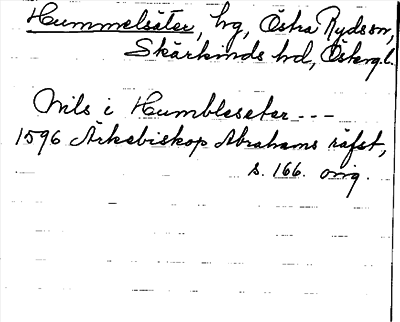 Hummelsäter, hg, Östra Ryds sn,
Skärkinds hd, Österg.l.
Nils i Humbleseter ---
1596 Ärkebiskop Abrahams räfst,
s. 166. orig.